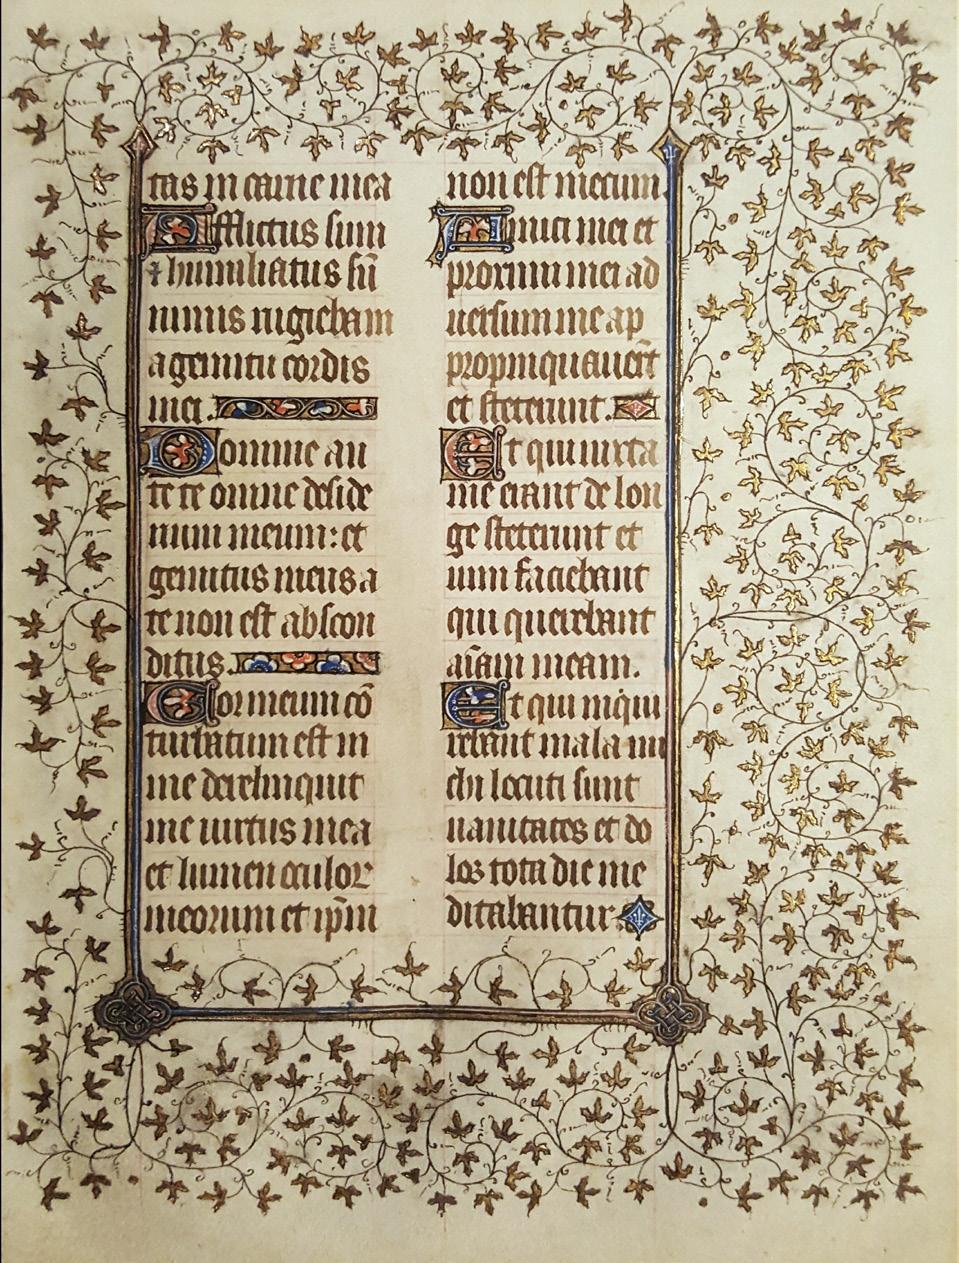 tas in carne mea
Afflictus sum
⁊ humiliatus sū
nimis rugiebam
a gemitu cordis
mei.
Domine an
te te omne deside
rium meum: et
gemitus meus a
te non est abscon
ditus.
Cor meum cō
turbatum est in
me dereliquit
me uirtus mea
et lumen oculor
meorum et ip̄m
non est mecum.
Amici mei et
proximi mei ad
uersum me ap
propinquauerūt
et steterunt.
Et qui iuxta
me erant de lon
ge steterunt et
uim faciebant
qui querebant
aīam meam.
Et qui inqui
rebant mala mi
chi locuti sunt
uanitates et do
los tota die me
ditabantur.